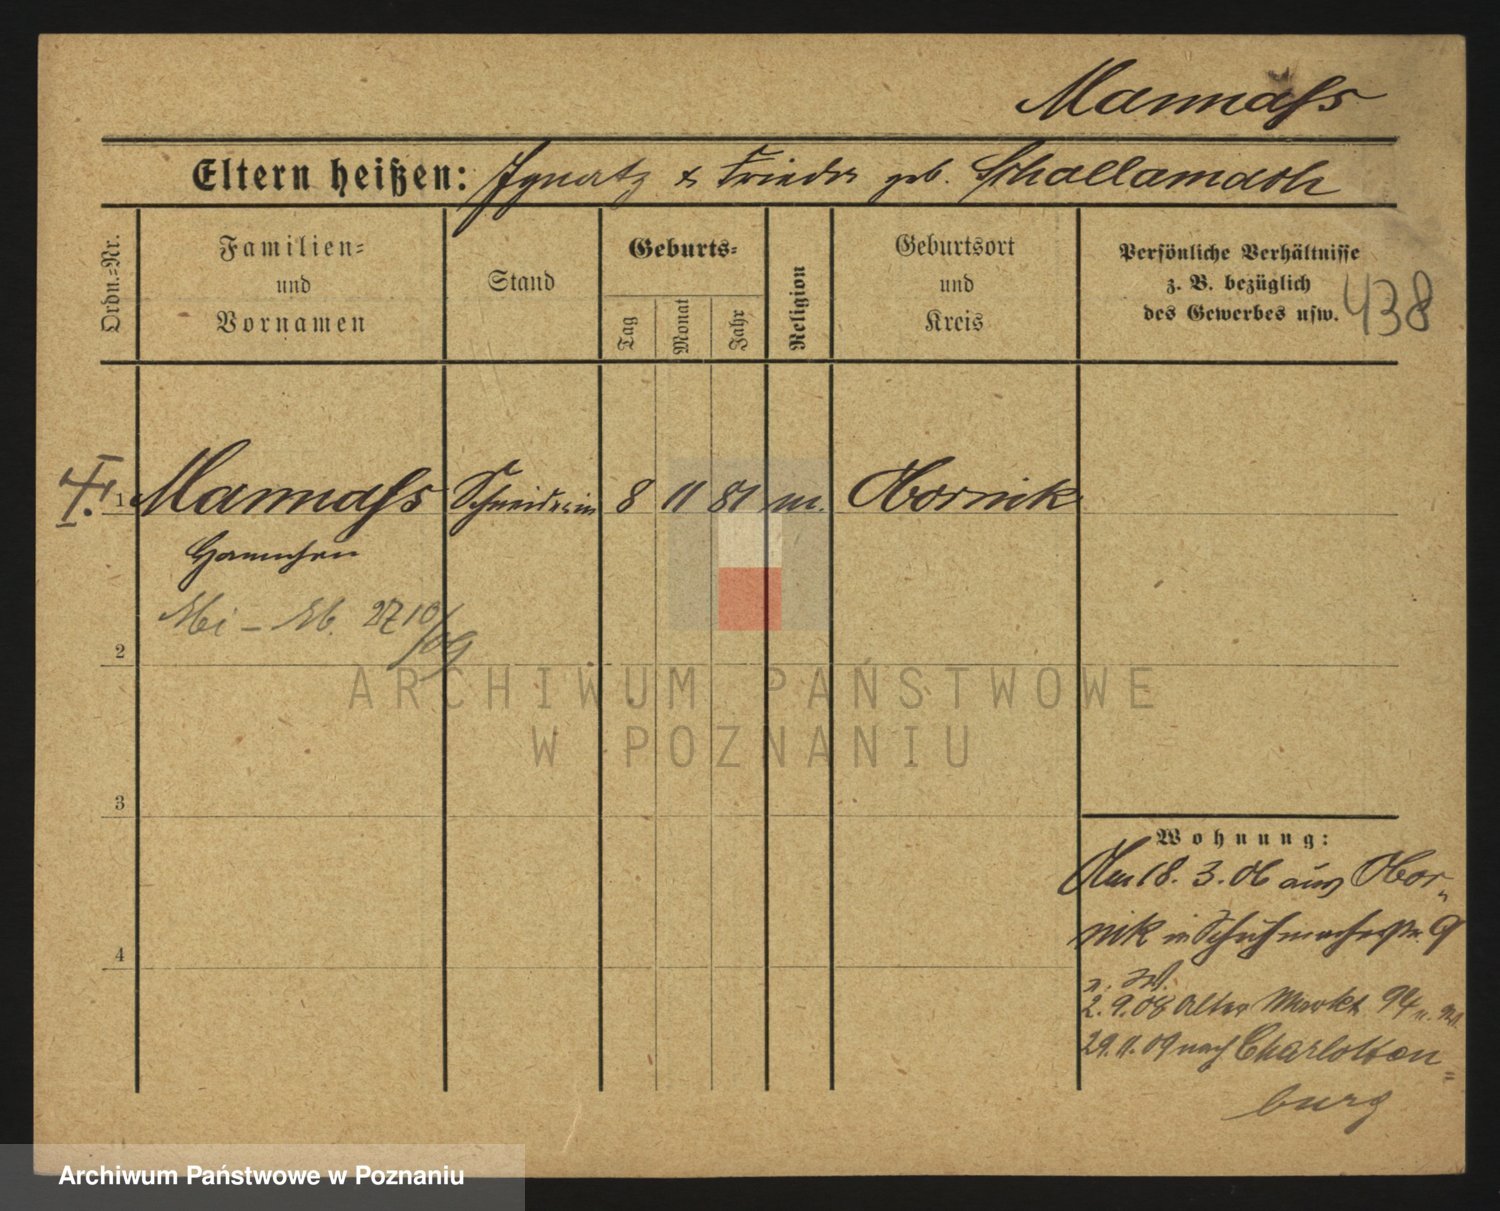 Mannaß
Eltern heißen: Ignatz & Frieda geb. Schallamach
Ordn.=Nr.
Familien=
und
Vornamen
Stand
Geburts=
Tag
Monat
Jahr
Religion
Geburtsort
und
Kreis
Persönliche Verhältnisse
z. B. bezüglich
des Gewerbes usw.
438
1 Mannaß Schneiderin 8 11 81 m. Obornik
Hannchen
27 10/09
2
3
4
Wohnung:
Am 18. 3. 06 aus Obor-
nik in Schuhmacherstr. 9
2. 9. 08 Alter Markt 94
29. 11. 09 nach Charlotten=
burg
ARCHIWUM PAŃSTWOWE
W POZNANIU
Archiwum Państwowe w Poznaniu